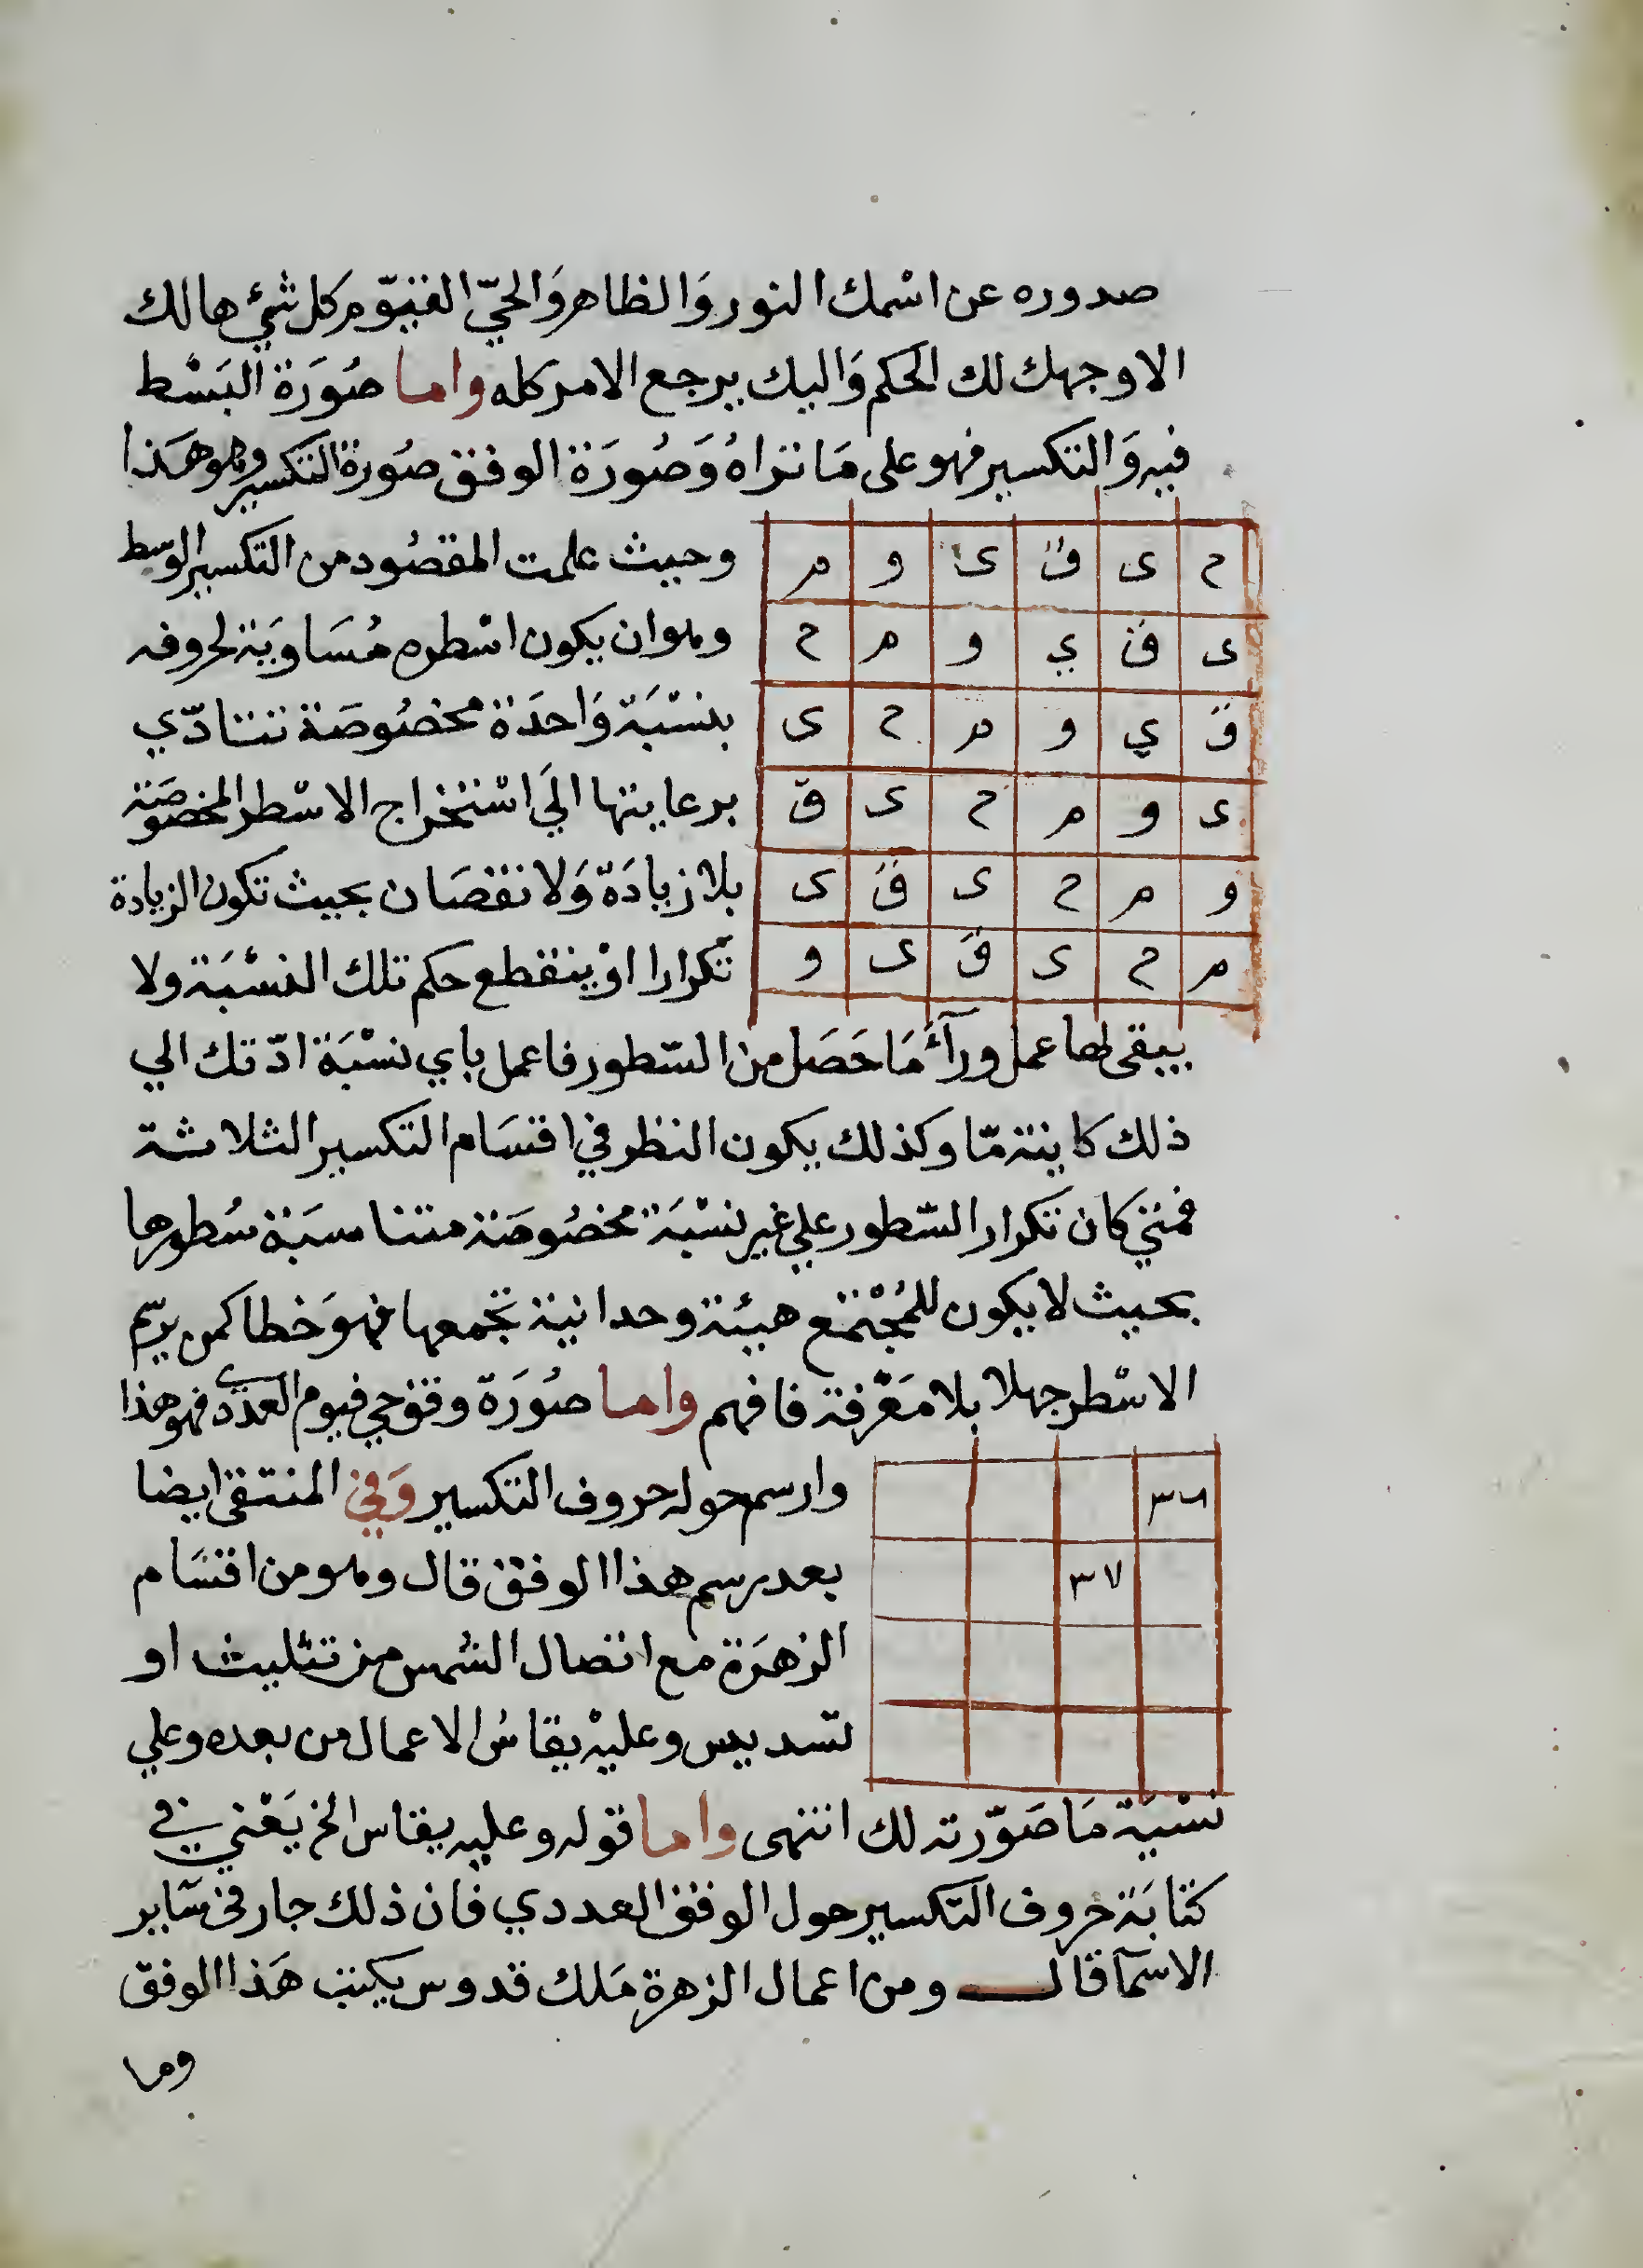 صدوره عن اسْمك النور وَالظاهر وَالحيّ القيّوم كل شيْء هالك
الا وجهك لك الحكم وَاليك يرجع الامر كله واما صُورَة البَسْط
فيه وَالتكسير فهو على مَا تراهُ وَصُورَة الوفق صُورة التكسير وهو هَذا
ح ى ق ى و م
وحيث علمت المقصُود من التكسير الوسط
ى ق ي و م ح
وهو ان يكون اسْطره مُسَاويَة لحروفه
ق ي و م ح ى
بنسْبَة وَاحدَة مخصُوصَة تتادّي
ى و م ح ى ق
برعايتها الَي اسْتخراج الاسْطر المخصوصَة
و م ح ى ق ى
بلا زيادَة وَلا نقصَان بحيث تكون الزيادة
م ح ى ق ى و
تكرارا اوْ ينقطع حكم تلك النسْبَة ولا
يبقى لها عمل ورآءَ مَا حَصَل من السّطور فاعمل باي نسْبَة ادّتك الي
ذلك كاينة مّا وكذلك يكون النظر في اقسَام التكسير الثلاثة
فمتي كان تكرار السّطور علي غير نسْبَة مخصُوصَة متناسبَة سُطورها
بحيث لا يكون للمُجْتمَع هيئة وحدانية تجمعها فهوَ خطا كمن يرسم
الاسْطر جهلا بلا مَعْرفة فافهم واما صُورَة وفق حي قيوم العددى فهو هذا
٣٦
وارسم حوله حروف التكسير وَفي المنتقى ايضا
٣٧
بعد رسم هذا الوفق قال وهو من اقسَام
الزهَرَة مع اتصال الشمس من تثليث او
تسديس وعليْه يقاسُ الاعمال من بعده وعلي
نسْبَة مَا صَوّرته لك انتهى واما قوله وعليه يقاس الخ يَعْني في
كتابَة حروف التكسير حول الوفق العددي فان ذلك جار في سَاير
الاسمآ قال ومن اعمال الزهرة مَلك قدوس يكتب هَذا الوفق
وما